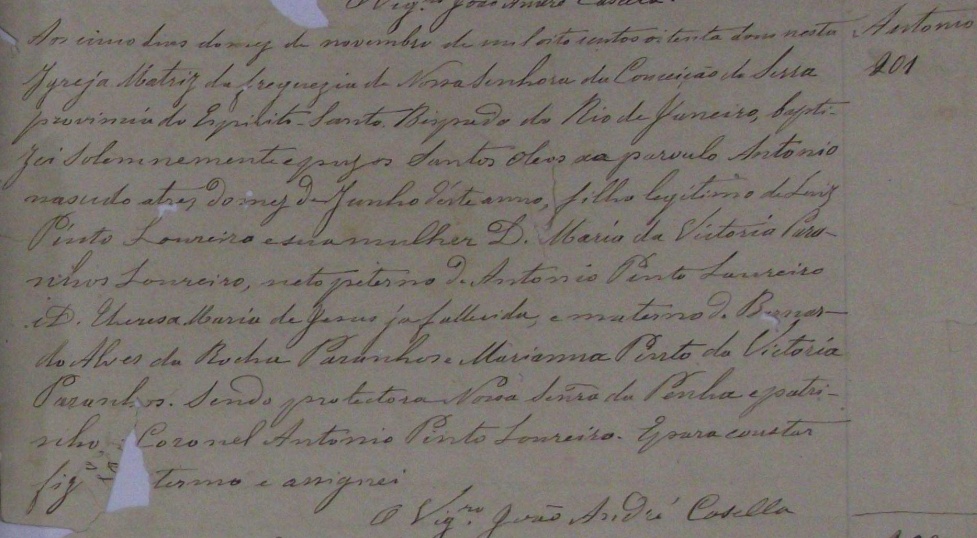 O Vig.ro João André Casella.
Aos cinco dias do mez de novembro de mil oito centos oitenta dous nesta
Igreja Matriz da freguezia de Nossa Senhora da Conceição da Serra
provincia do Espirito-Santo. Bispado do Rio de Janeiro, bapti-
zei solemnemente e puz os Santos Oleos ao parvulo Antonio
nascido a tres do mez de Junho d'este anno, filho legitimo de Luiz
Pinto Loureiro e sua mulher D. Maria da Victoria Para-
nhos Loureiro, neto peterno de Antonio Pinto Loureiro
e D. Theresa Maria de Jesus ja fallecida, e materno de Bernar-
do Alves da Rocha Paranhos e Marianna Pinto da Victoria
Paranhos. Sendo protectora Nossa Senra da Penha e patri-
nho, Coronel Antonio Pinto Loureiro. E para constar
fiz termo e assignei
O Vig.ro João André Casella
Antonio
201